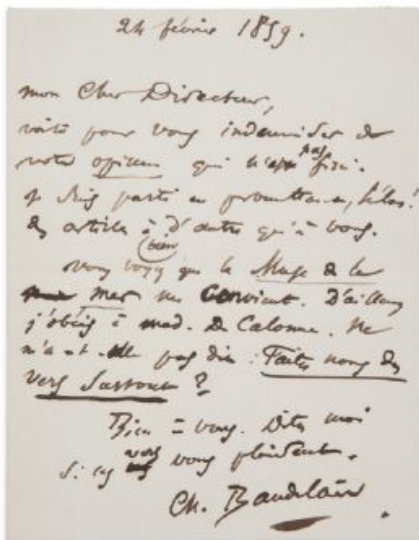 24 février 1859.
mon cher Directeur,
voilà pour vous indemniser de
votre opium qui n'est pas fini.
je suis parti en promettant, hélas!
des articles à d'autres qu'à vous.
vous voyez bien que la Muse de la
mer me convient. D'ailleurs
j'obéis à mad. De Calonne. Ne
m'a-t-elle pas dit : Faites nous des
vers surtout ?
Bien à vous. Dites moi
si ces vers vous plaisent.
Ch. Baudelaire.